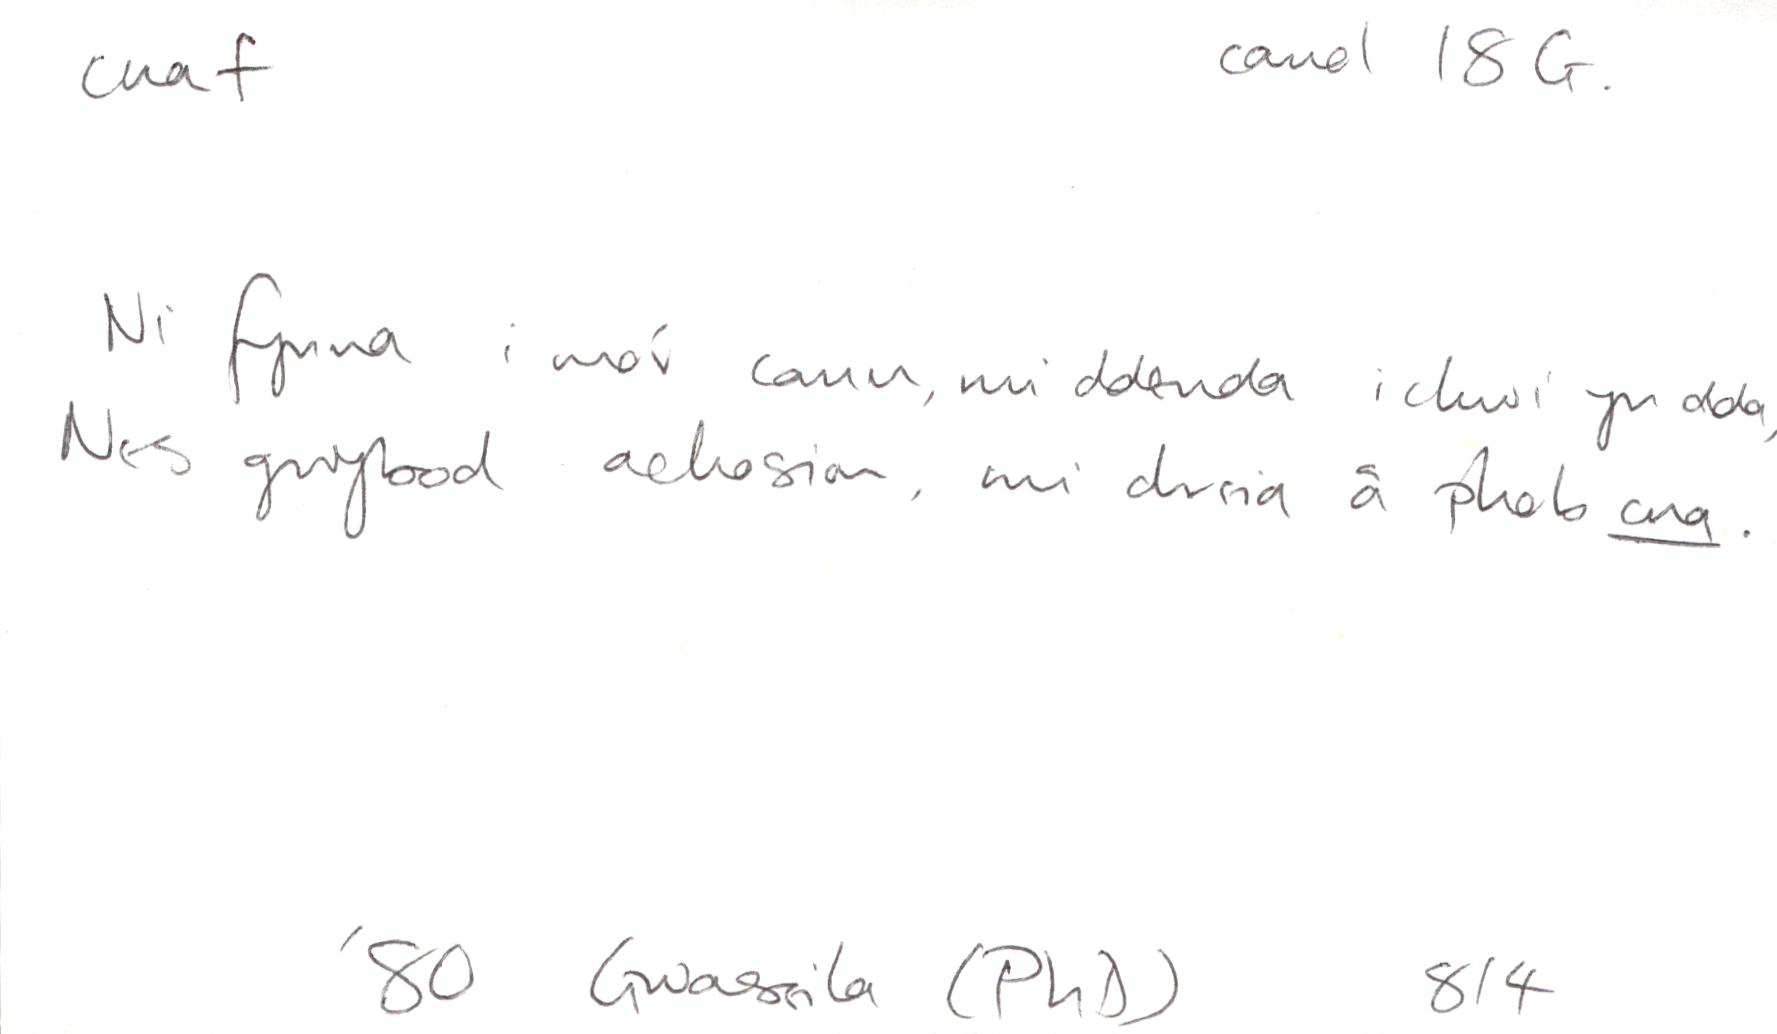 cnaf canol 18 G.
Ni fynna i mo'r cann, mi ddenda i chwi yn dda,
Nes gwybod achosion, mi dreia â phob cna.
'80 Gwaseila (PhD) 814